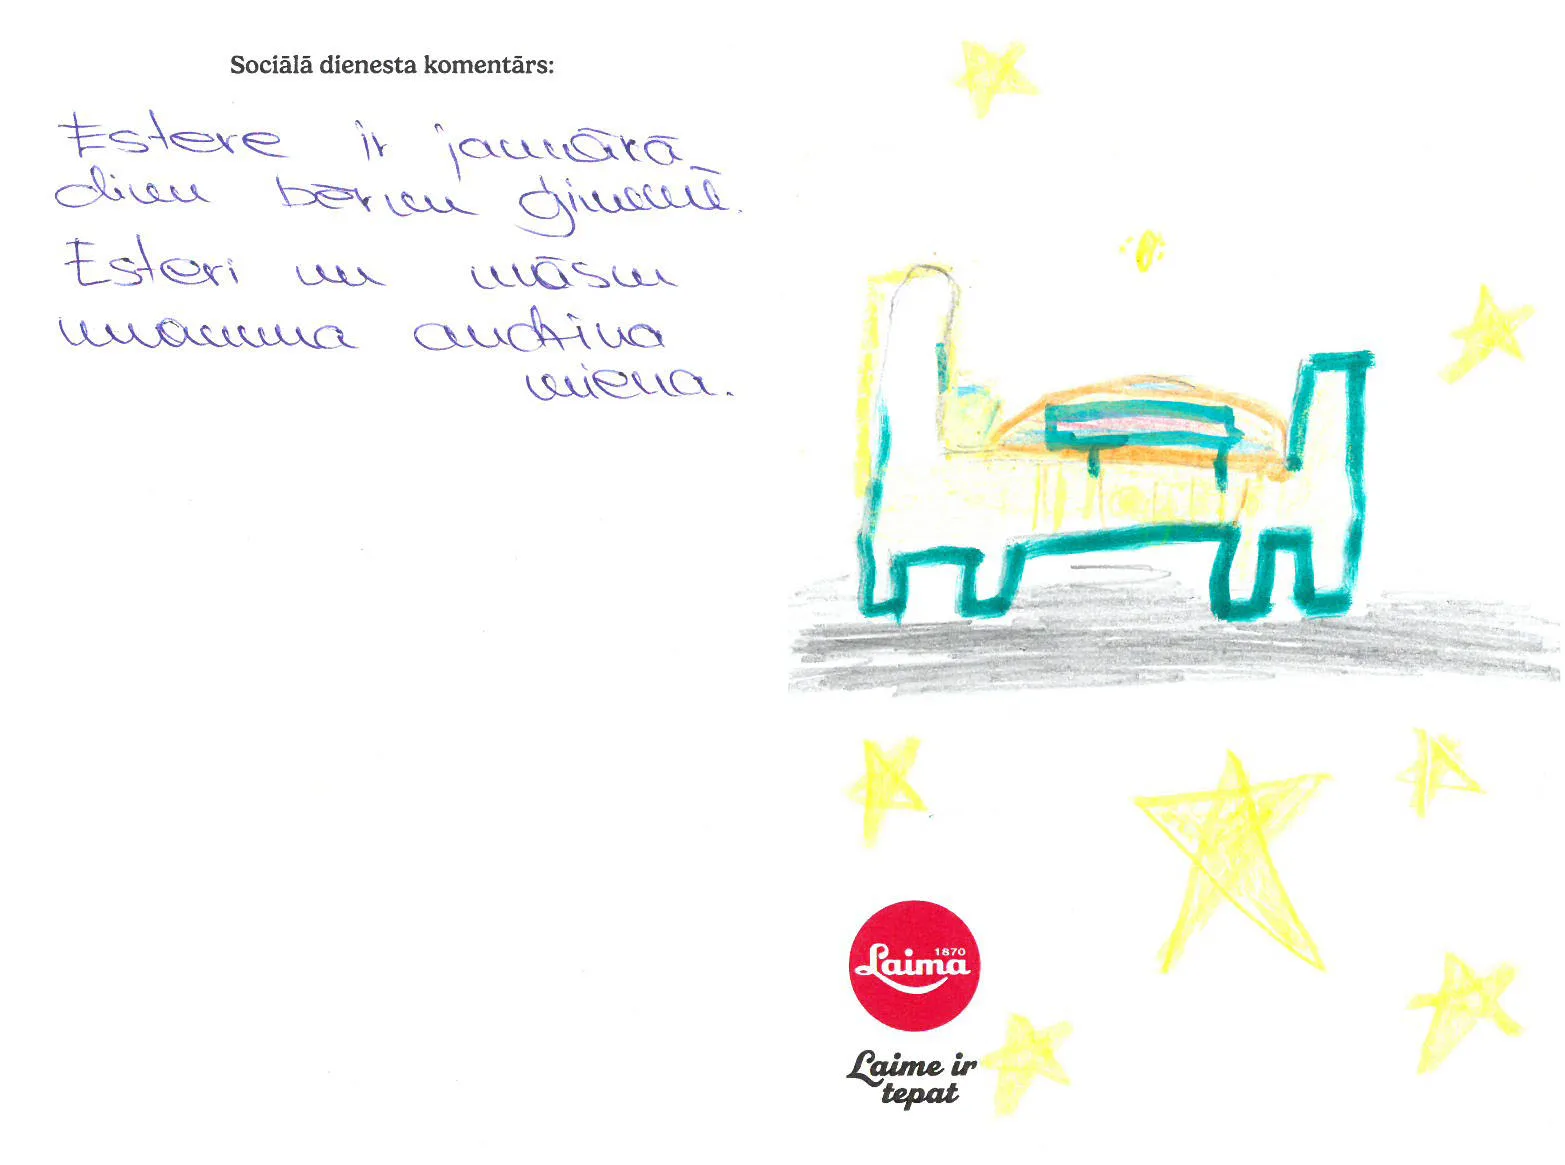 Sociālā dienesta komentārs:
Estere ir jaunākā
divu bērnu ģimenē.
Esteri un māsu
mamma audzina
viena.
1870
Laima
Laime ir
tepat